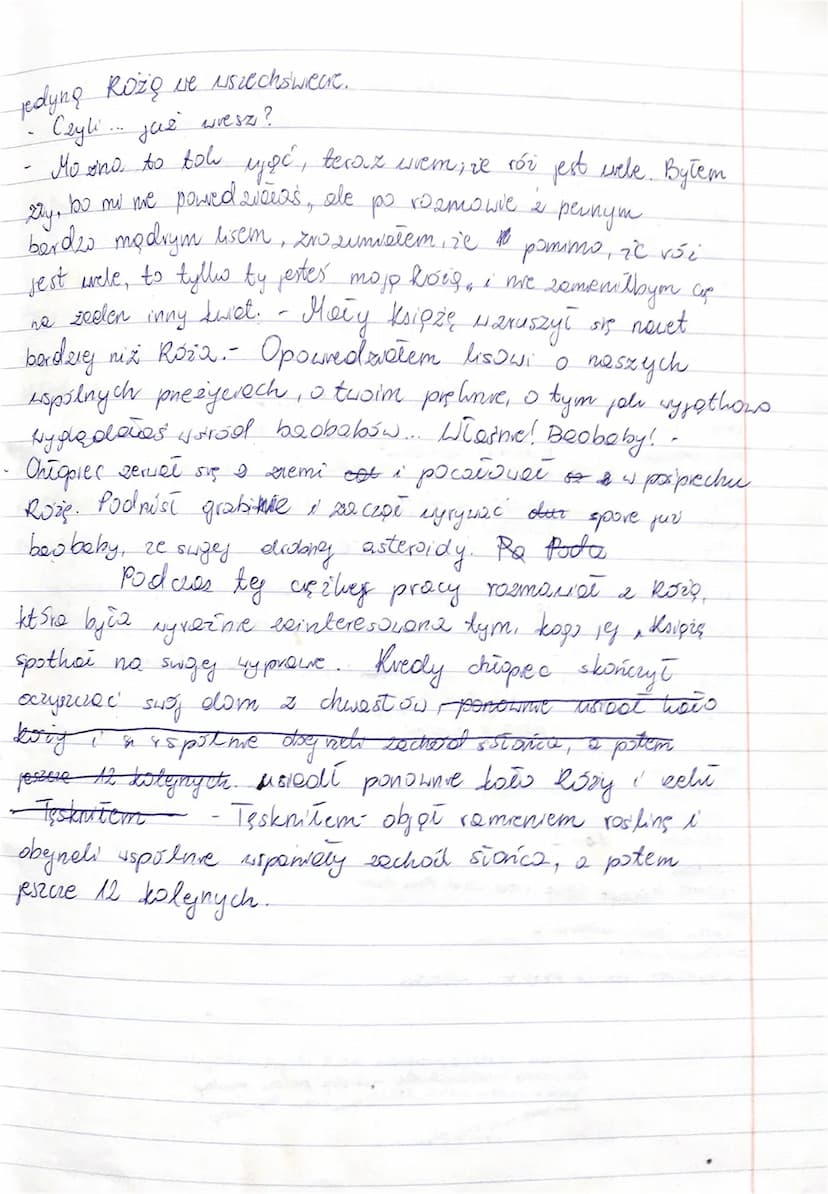 jedyną Różą we wszechświecie.
- Czyli... już wiesz?
- Można to tak ująć, teraz wiem, że róż jest wiele. Byłem
zły, bo mi nie powiedziałaś, ale po rozmowie z pewnym
bardzo mądrym lisem, zrozumiałem, że pomimo, że róż
jest wiele, to tylko ty jesteś moją Różą, i nie zamieniłbym cię
na żaden inny kwiat. - Mały Książę wzruszył się nawet
bardziej niż Róża. - Opowiedziałem lisowi o naszych
wspólnych przeżyciach, o twoim pięknie, o tym jak wyjątkowo
wyglądałaś wśród baobabów... Właśnie! Baobaby! -
Chłopiec zerwał się z ziemi i pocałował w pośpiechu
Różę. Podniósł grabie i zaczął wyrywać spore już
baobaby, ze swojej drobnej asteroidy. Po Podcz
Podczas tej ciężkiej pracy rozmawiał z Różą,
która była wyraźnie zainteresowana tym, kogo jej Książę
spotkał na swojej wyprawie. Kiedy chłopiec skończył
oczyszczać swój dom z chwastów, ponownie usiadł koło
Róży i wspólnie obejrzeli zachód słońca, a potem
jeszcze 12 kolejnych. usiadł ponownie koło Róży i rzekł
Tęskniłem - Tęskniłem - objął ramieniem roślinę i
obejrzeli wspólnie wspaniały zachód słońca, a potem
jeszcze 12 kolejnych.